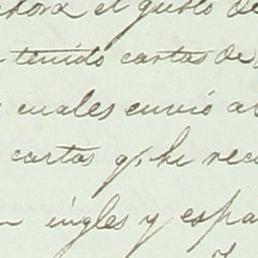 ahora el gusto de
tenido cartas de
cuales envió a
cartas q, he rec
ingles y espa